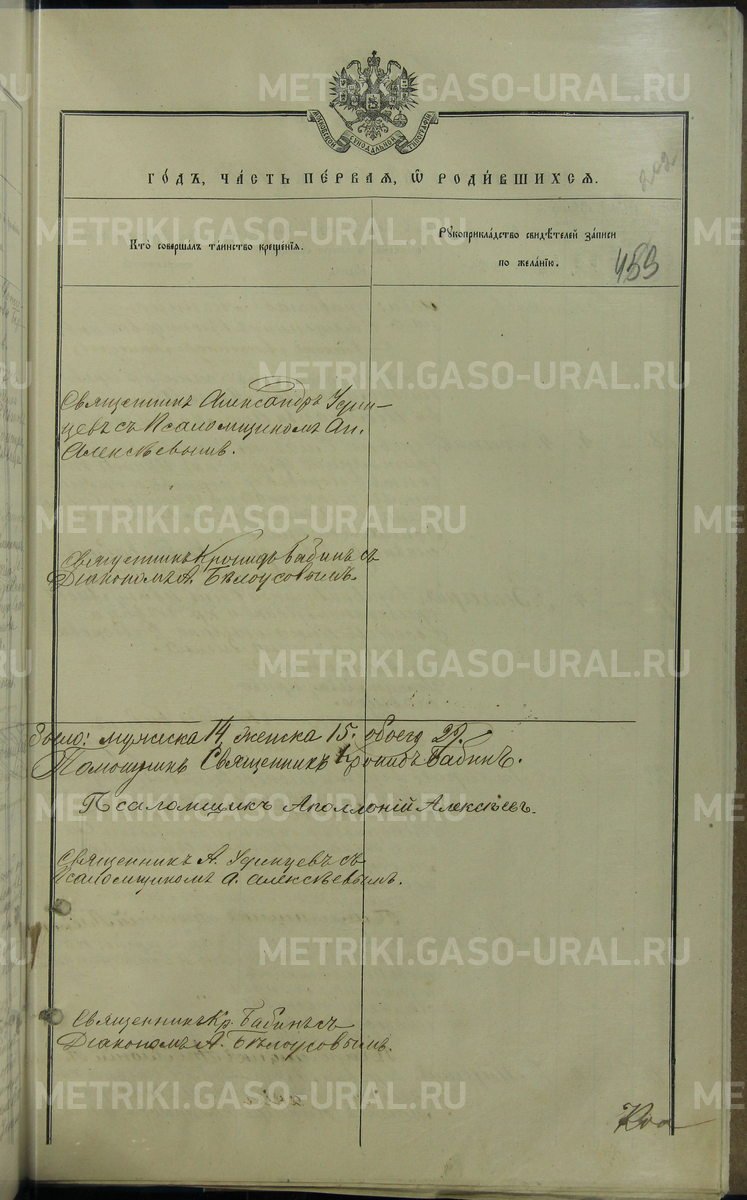 МОСКОВСКОЙ СѴНОДАЛЬНОЙ ТИПОГРАФІИ
ГО́ДЪ, ЧА́СТЬ ПЕ́РВАЯ, Ѡ҆ РОДИ́ВШИХСѦ.
202
Кто̀ соверша́лъ та́инство креще́нїѧ.
Рꙋкоприкла́дство свидѣ́телей за́писи
по жела́нїю.
453
Священникъ Александръ Удин-
цевъ съ Псаломщикомъ Ап.
Алексѣевымъ.
Священникъ Кронидъ Бабинъ съ
Діакономъ А. Бѣлоусовымъ.
Было: мужеска 14, женска 15. обоего 29.
Священникъ Кронидъ Бабинъ.
Псаломщикъ Аполлоній Алексѣевъ.
Священникъ А. Удинцевъ съ
Псаломщикомъ А. Алексѣевымъ.
Священникъ Кр. Бабинъ съ
Діакономъ А. Бѣлоусовымъ.
METRIKI.GASO-URAL.RU